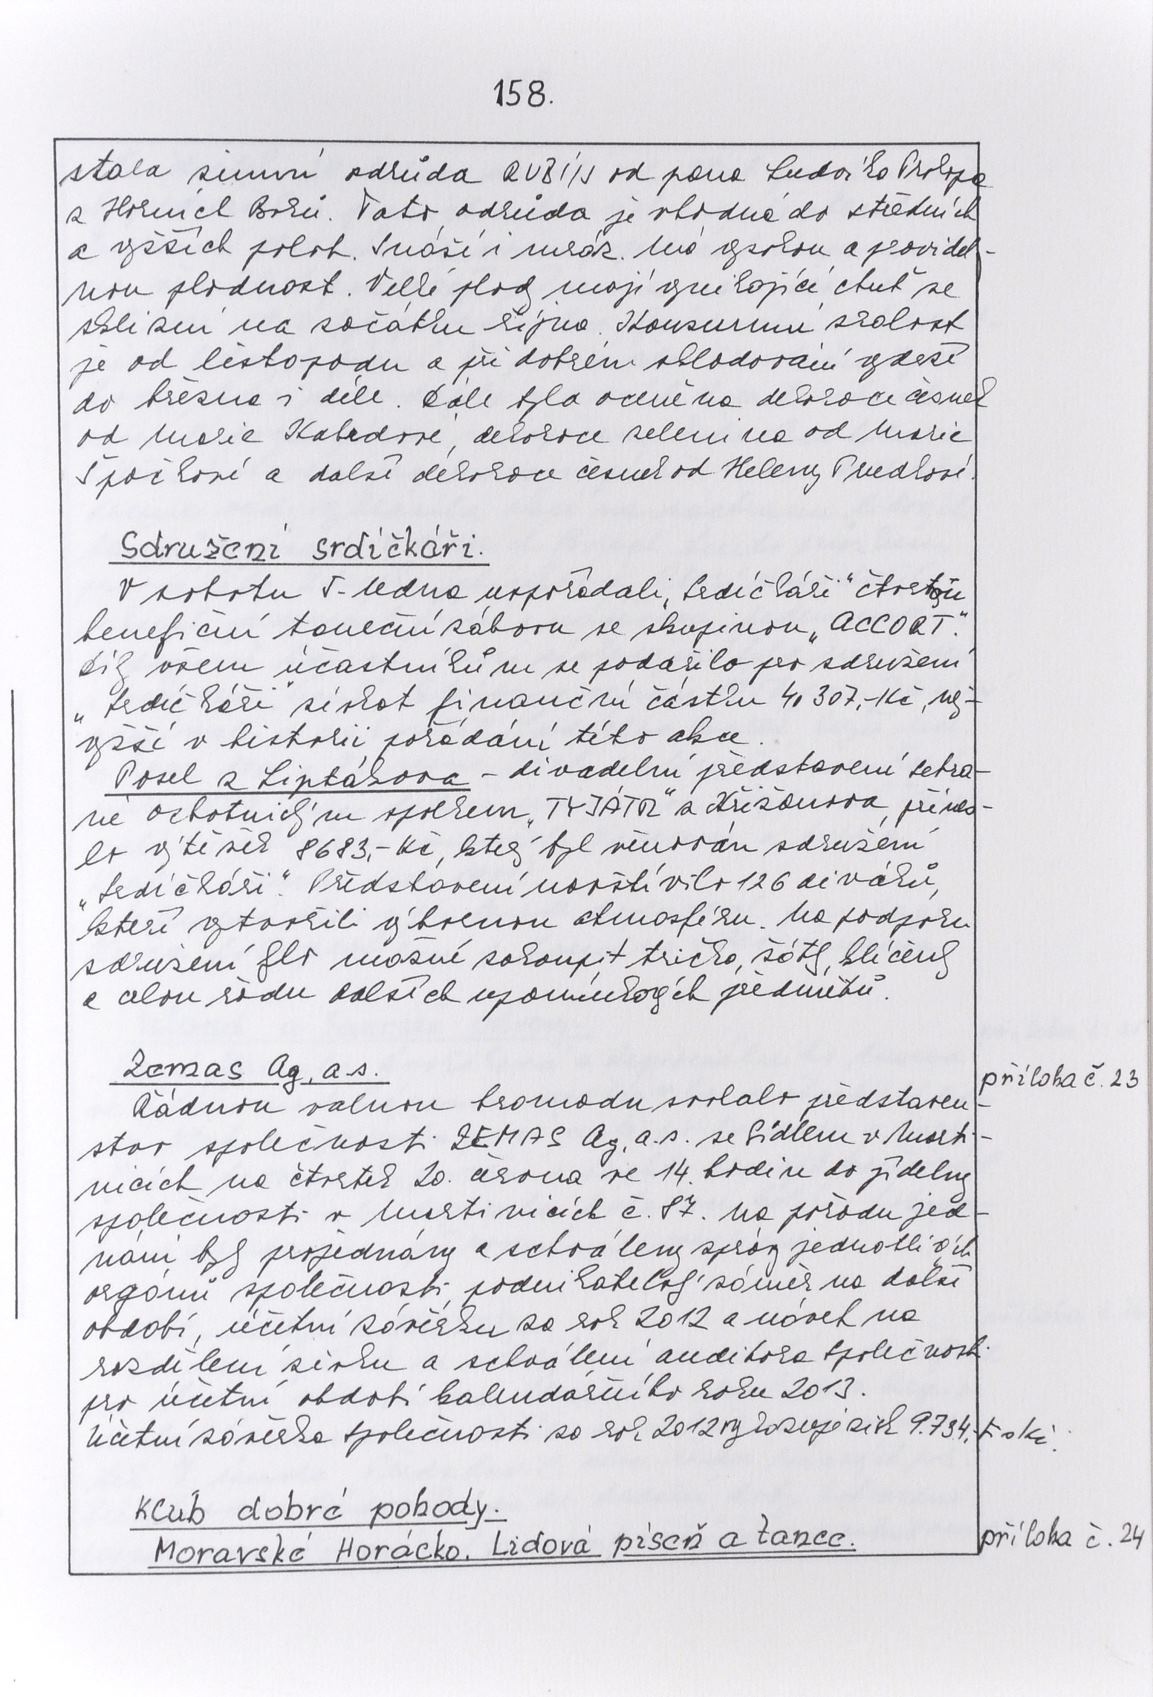 158.
stala zimní odrůda RUBÍN od pana Ludvíka Prokopa
z Horních Borů. Tato odrůda je vhodná do středních
a vyšších poloh. Snáší i mráz. Má vysokou a pravidel-
nou plodnost. Velké plody mají vynikající chuť se
sklizní na začátku října. Konzumní zralost
je od listopadu a při dobrém skladování vydrží
do března i déle. Dále byla oceněna dekorace česnek
od Marie Kabrdové, dekorace zelenina od Marie
Špačkové a další dekorace česnek od Heleny
Sdružení srdíčkáři.
V sobotu 5. ledna uspořádali „srdíčkáři“ čtvrtou
benefiční taneční zábavu se skupinou „ACCORT“.
Díky všem účastníkům se podařilo pro sdružení
„srdíčkáři“ získat finanční částku 40 307,-Kč, nej-
vyšší v historii pořádání této akce.
Posel z Liptákova - divadelní představení sehra-
né ochotnickým spolkem „TYJÁTR“ z Křižanova, přines-
lo výtěžek 8683,-Kč, který byl věnován sdružení
„srdíčkáři“. Představení navštívilo 126 diváků,
kteří vytvořili výbornou atmosféru. Na podporu
sdružení bylo možné zakoupit trička, šátky, klíčenky
a celou řadu dalších upomínkových předmětů.
Zemas Ag, a.s.
příloha č. 23
Řádnou valnou hromadu svolalo představen-
stvo společnosti ZEMAS Ag, a.s. se sídlem v Marti-
nicích na čtvrtek 20. června ve 14. hodin do jídelny
společnosti v Martinicích č. 87. Na pořadu jed-
nání byly projednány a schváleny zprávy jednotlivých
orgánů společnosti, podnikatelský záměr na další
období, účetní závěrku za rok 2012 a návrh na
rozdělení zisku a schválení auditora společnosti
pro účetní období kalendářního roku 2013.
Účetní závěrka společnosti za rok 2012 vykazuje zisk 9.734,-
Klub dobré pohody.
Moravské Horácko. Lidová píseň a tance.
příloha č. 24